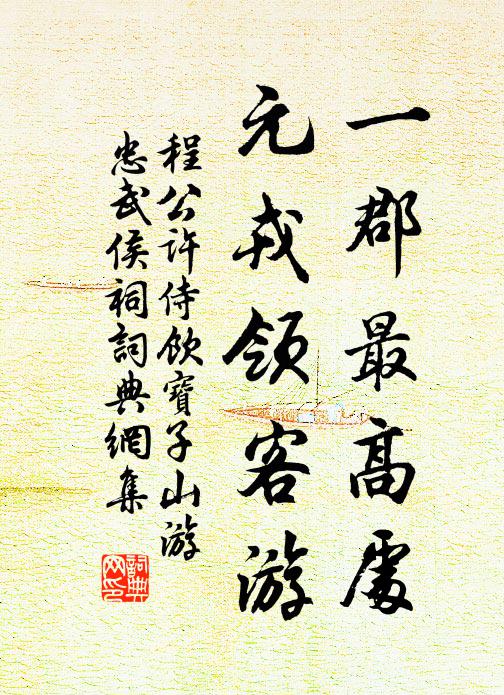 一郡最高處
元戎領客游
程公许侍飲寶子山游
忠武侯祠詞典網集
詞典網印